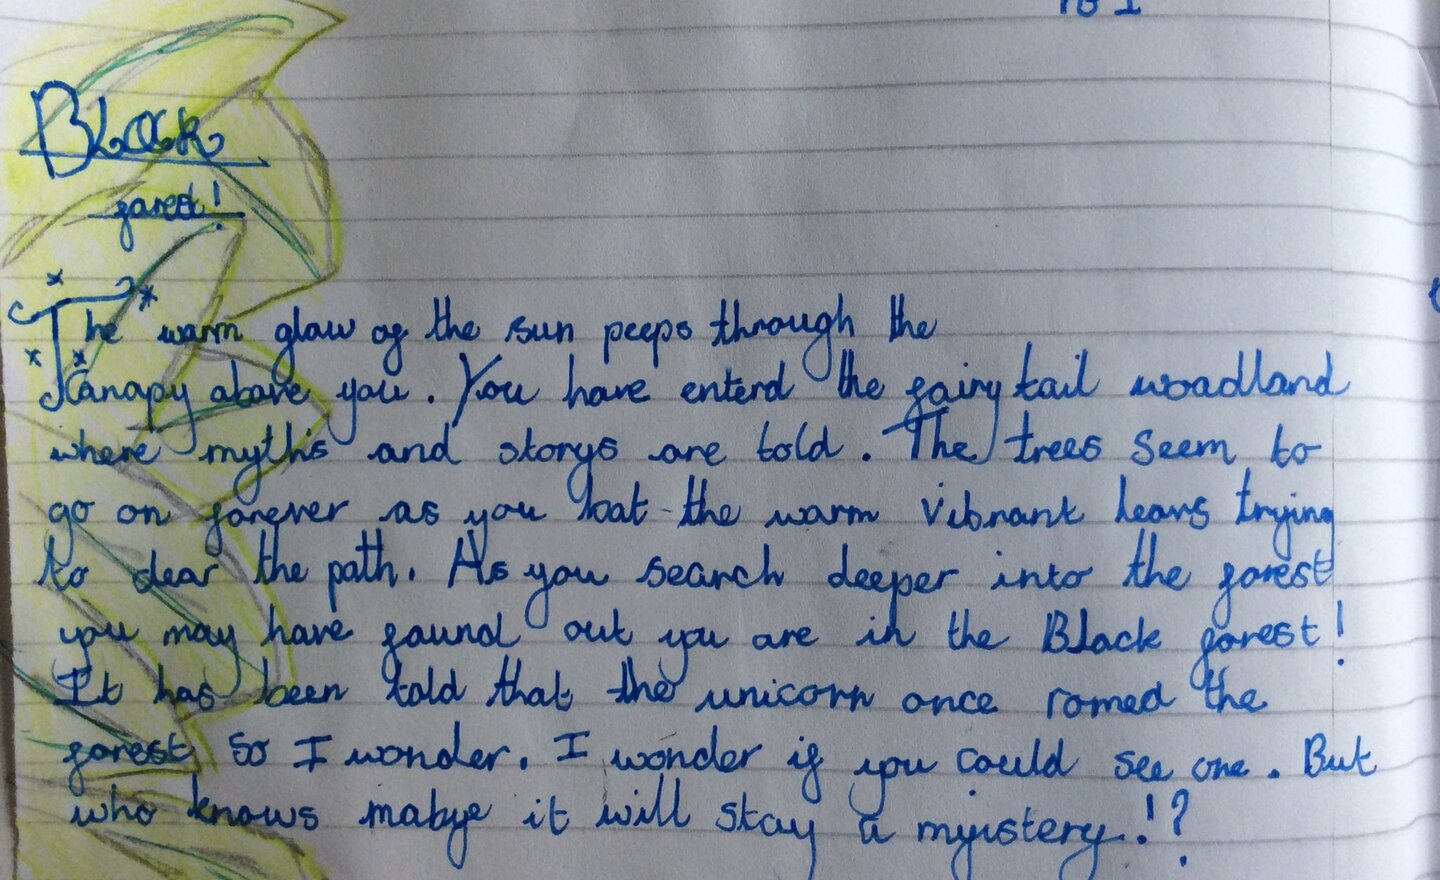 to I
Black
forest!
The warm glow of the sun peeps through the
canapy above you. You have enterd the fairy tail woodland
where myths and storys are told. The trees seem to
go on forever as you bat the warm vibrant leavs trying
to clear the path. As you search deeper into the forest
you may have found out you are in the Black forest!
It has been told that the unicorn once romed the
forest so I wonder. I wonder if you could see one. But
who knows mabye it will stay a myistery.!?